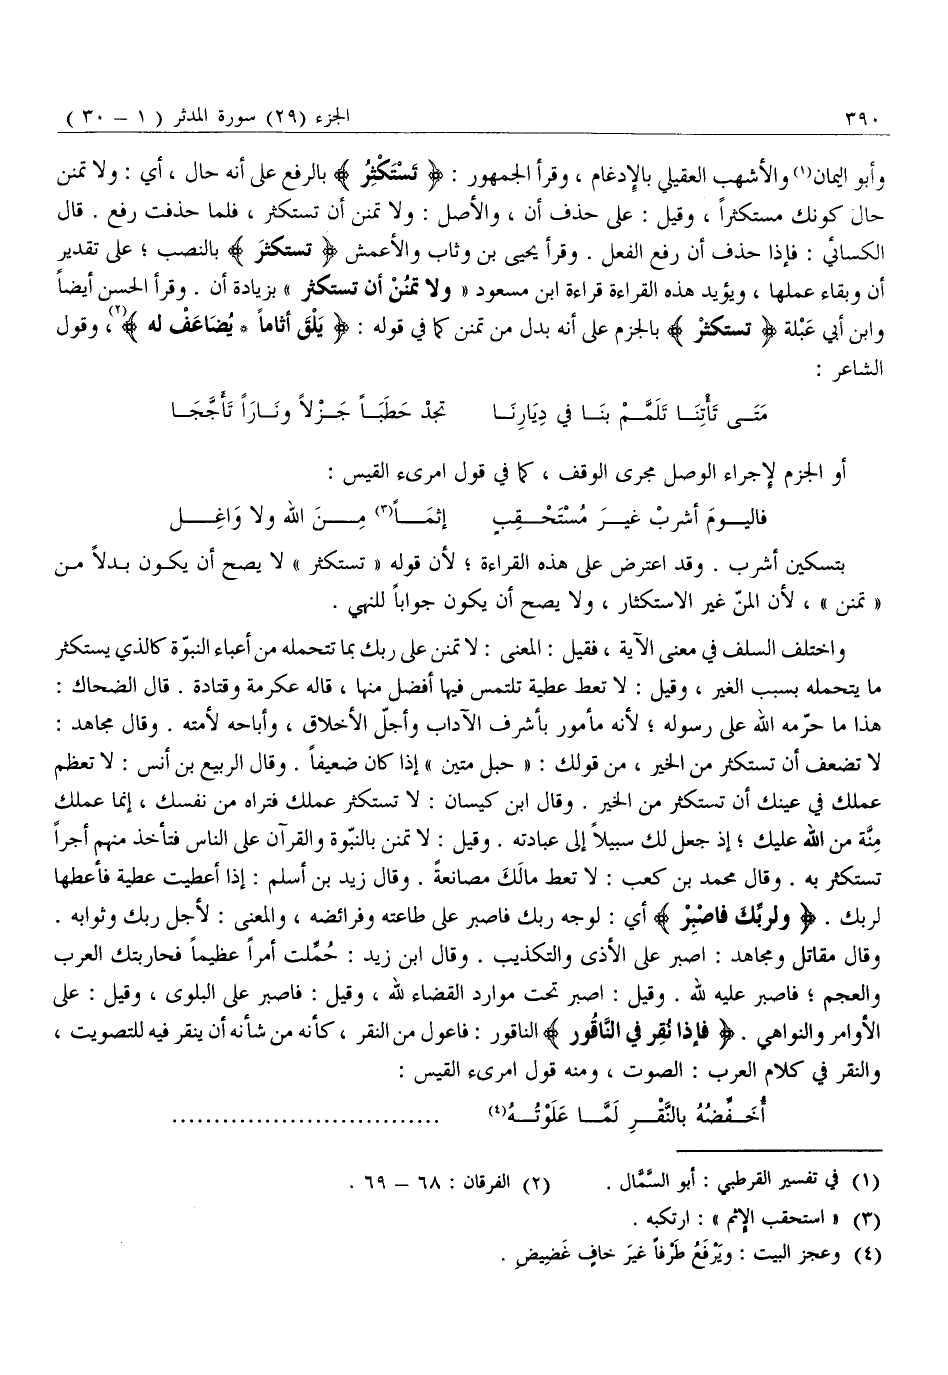 ٣٩٠ الجزء (٢٩) سورة المدثر ( ١ – ٣٠ )
وأبو اليمان(١) والأشهب العقيلي بالإدغام ، وقرأ الجمهور : ﴿ تَسْتَكْثِرُ ﴾ بالرفع على أنه حال ، أي : ولا تمنن
حال كونك مستكثراً ، وقيل : على حذف أن ، والأصل : ولا تمنن أن تستكثر ، فلما حذفت رفع . قال
الكسائي : فإذا حذف أن رفع الفعل . وقرأ يحيى بن وثاب والأعمش ﴿ تستكثرَ ﴾ بالنصب ؛ على تقدير
أن وبقاء عملها ، ويؤيد هذه القراءة قراءة ابن مسعود « ولا تمنُنْ أن تستكثر » بزيادة أن . وقرأ الحسن أيضاً
وابن أبي عَبْلة ﴿ تستكثرْ ﴾ بالجزم على أنه بدل من تمنن كما في قوله : ﴿ يَلْقَ أثاماً * يُضاعَفْ له ﴾(٢)، وقول
الشاعر :
مَتَـى تَأْتِنَـا تَلَمَّـمْ بنَـا في دِيَارِنَـا تجدْ حَطَبَـاً جَـزْلاً ونَـارَاً تَأَجَّجَـا
أو الجزم لإجراء الوصل مجرى الوقف ، كما في قول امرىء القيس :
فاليـومَ أشربْ غيـرَ مُسْتَحْـقِبٍ إثمَـاً(٣) مِـنَ الله ولا وَاغِـل
بتسكين أشرب . وقد اعترض على هذه القراءة ؛ لأن قوله « تستكثر » لا يصح أن يكون بدلاً من
« تمنن » ، لأن المنّ غير الاستكثار ، ولا يصح أن يكون جواباً للنهي .
واختلف السلف في معنى الآية ، فقيل : المعنى : لا تمنن على ربك بما تتحمله من أعباء النبوّة كالذي يستكثر
ما يتحمله بسبب الغير ، وقيل : لا تعط عطية تلتمس فيها أفضل منها ، قاله عكرمة وقتادة . قال الضحاك :
هذا ما حرّمه الله على رسوله ؛ لأنه مأمور بأشرف الآداب وأجلّ الأخلاق ، وأباحه لأمته . وقال مجاهد :
لا تضعف أن تستكثر من الخير ، من قولك : « حبل متين » إذا كان ضعيفاً . وقال الربيع بن أنس : لا تعظم
عملك في عينك أن تستكثر من الخير . وقال ابن كيسان : لا تستكثر عملك فتراه من نفسك ، إنما عملك
مِنَّة من الله عليك ؛ إذ جعل لك سبيلاً إلى عبادته . وقيل : لا تمنن بالنبّوة والقرآن على الناس فتأخذ منهم أجراً
تستكثر به . وقال محمد بن كعب : لا تعط مالَكَ مصانعةً . وقال زيد بن أسلم : إذا أعطيت عطية فأعطها
لربك . ﴿ ولربِّكَ فاصْبِرْ ﴾ أي : لوجه ربك فاصبر على طاعته وفرائضه ، والمعنى : لأجل ربك وثوابه .
وقال مقاتل ومجاهد : اصبر على الأذى والتكذيب . وقال ابن زيد : حُمِّلت أمراً عظيماً فحاربتك العرب
والعجم ؛ فاصبر عليه لله . وقيل : اصبر تحت موارد القضاء لله ، وقيل : فاصبر على البلوى ، وقيل : على
الأوامر والنواهي . ﴿ فإذا نُقِر في النَّاقُور ﴾ الناقور : فاعول من النقر ، كأنه من شأنه أن ينقر فيه للتصويت ،
والنقر في كلام العرب : الصوت ، ومنه قول امرىء القيس :
أُخَـفِّضُهُ بالنَّقْـرِ لَمَّـا عَلَوْتُـهُ(٤) ..............................
(١) في تفسير القرطبي : أبو السَّمَّال . (٢) الفرقان : ٦٨ – ٦٩ .
(٣) « استحقب الإثم » : ارتكبه .
(٤) وعجز البيت : ويَرْفَعُ طَرْفاً غيرَ خافٍ غَضِيضِ .